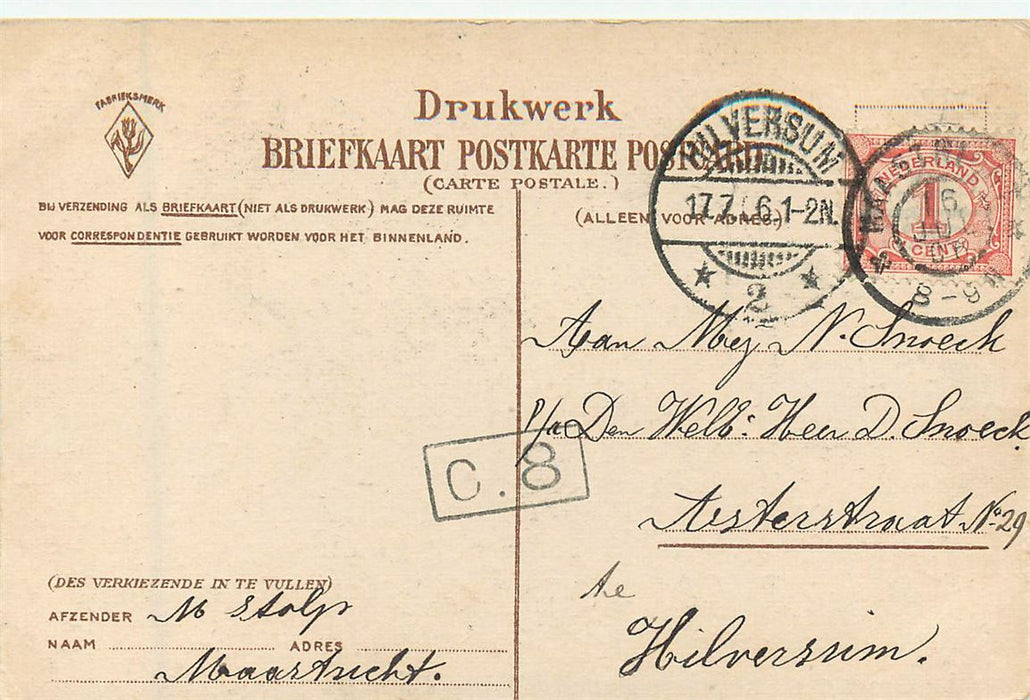 FABRIEKSMERK
Drukwerk
BRIEFKAART POSTKARTE POSTCARD
(CARTE POSTALE.)
BIJ VERZENDING ALS BRIEFKAART (NIET ALS DRUKWERK) MAG DEZE RUIMTE
VOOR CORRESPONDENTIE GEBRUIKT WORDEN VOOR HET BINNENLAND.
(ALLEEN VOOR ADRES.)
HILVERSUM
17.7. 6.1-2N.
2
NEDERLAND
1
CENT
8-9N
Aan Mej N. Snoeck
p/a Den Welb: Heer D. Snoeck
C.8
Nº 29
te
Hilversum.
(DES VERKIEZENDE IN TE VULLEN)
AFZENDER M Stolp
NAAM ADRES
Maastricht.